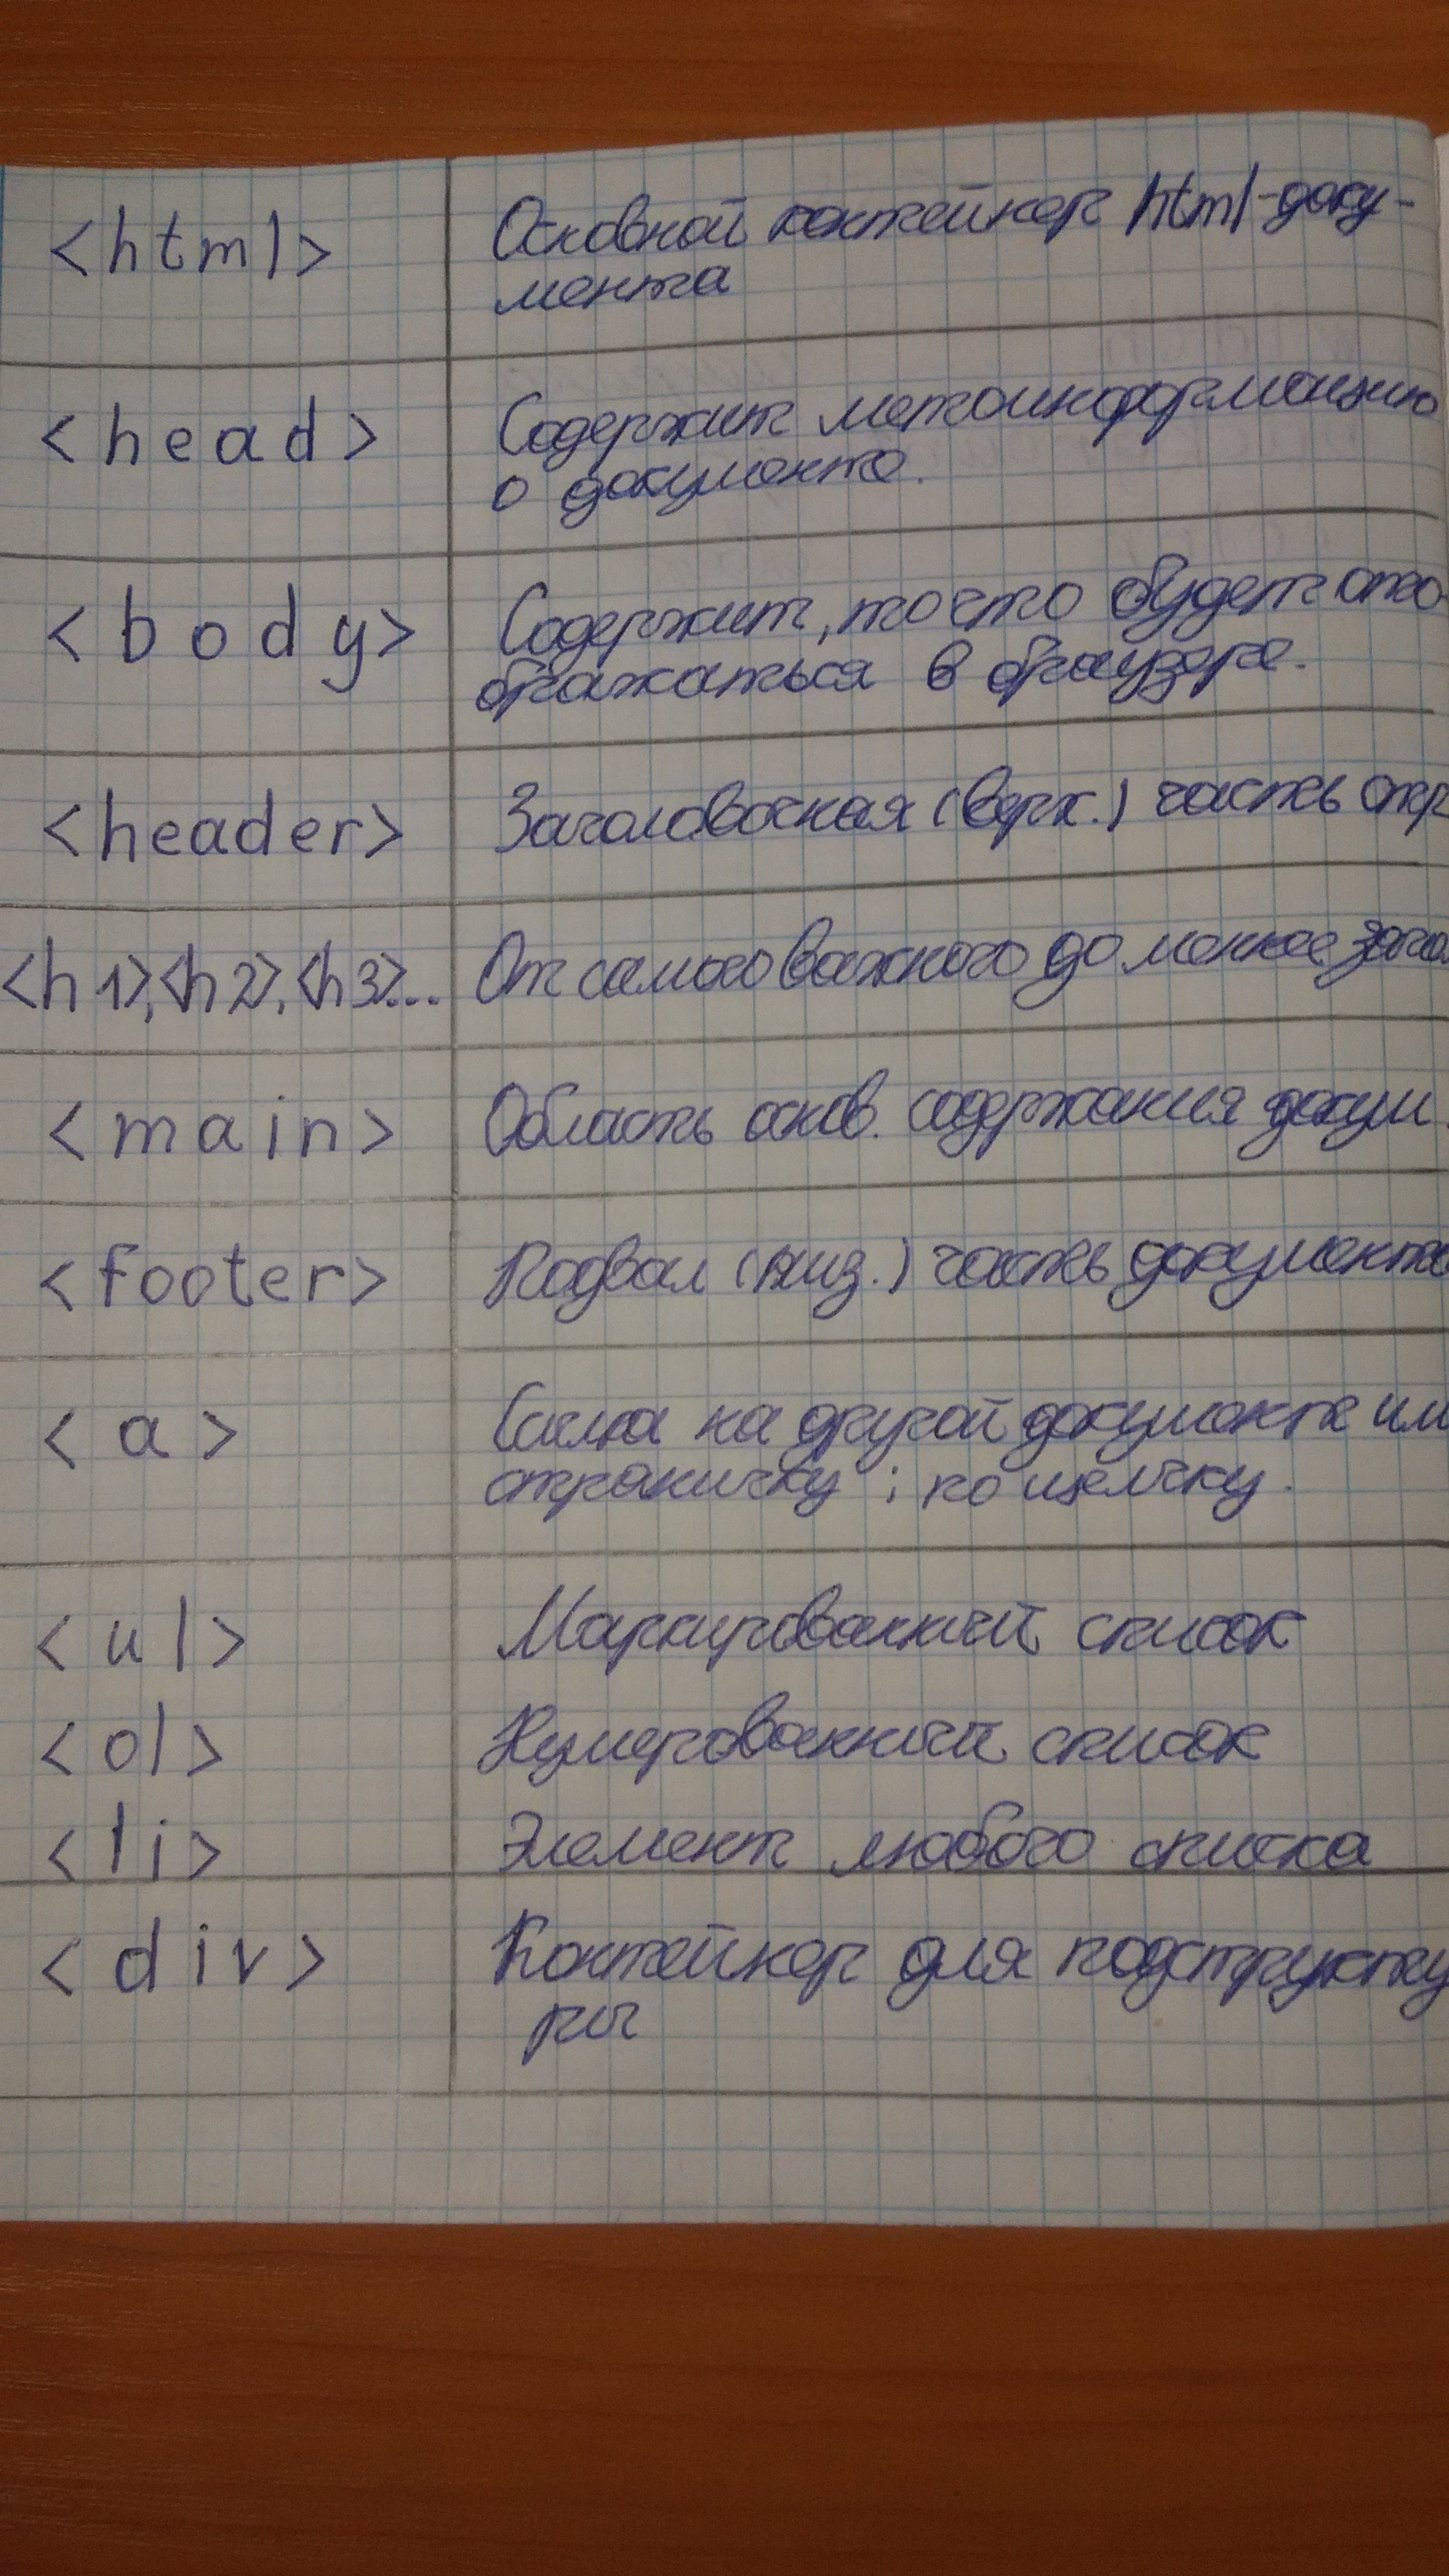 <html> Основной контейнер html-доку-
мента
<head> Содержит метаинформацию
о документе.
<body> Содержит, то что будет ото-
бражаться в браузере.
<header> Заголовочная (верх.) часть стр
<h1>,<h2>,<h3>... От самого важного до менее загол
<main> Область основ. содержания докум.
<footer> Подвал (низ.) часть документа
<a> Ссылка на другой документ или
страничку ; по щелчку.
<ul> Маркированный список
<ol> Нумерованный список
<li> Элемент любого списка
<div> Контейнер для подструкту
ры